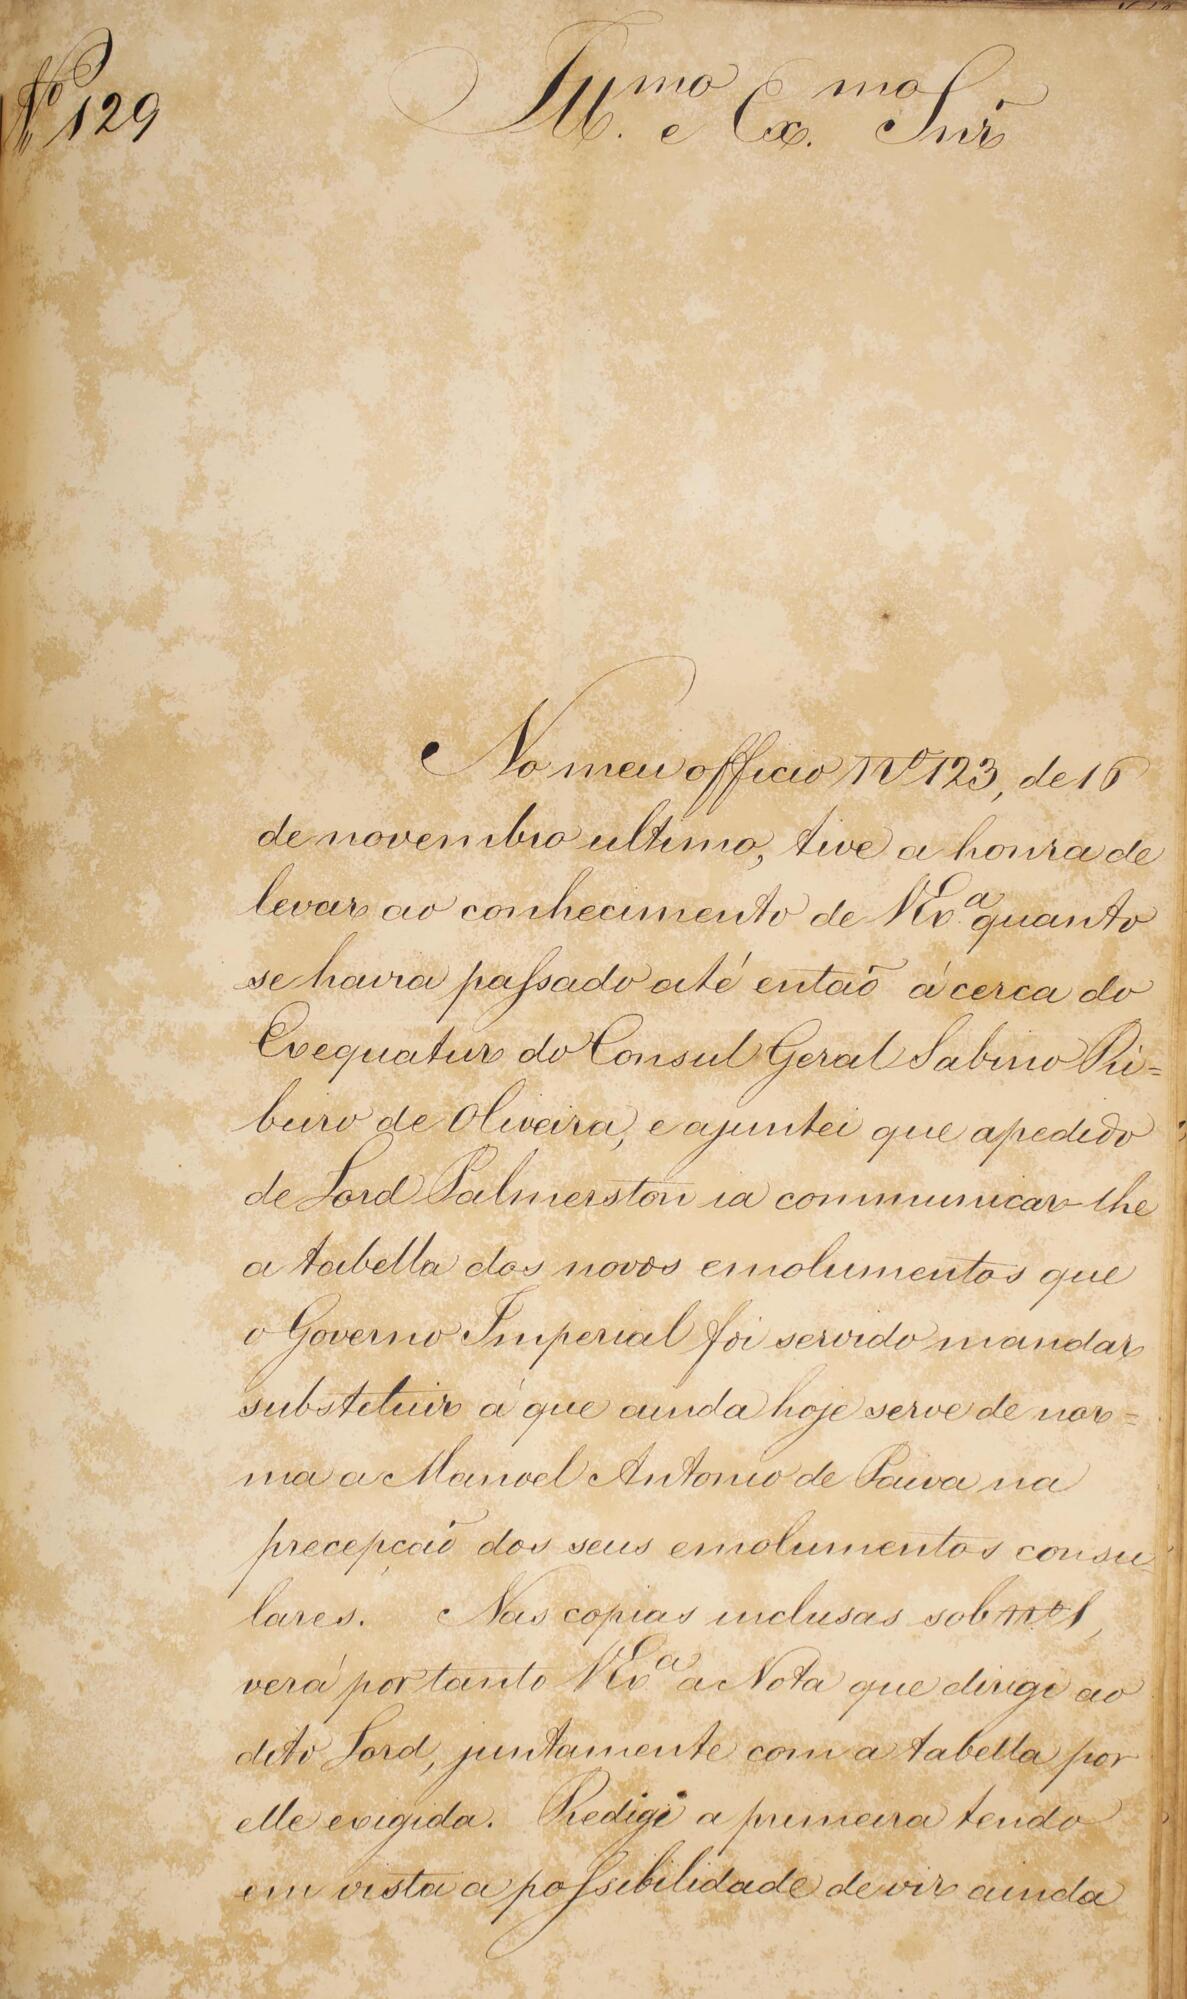 Nº 129
Illmo. e Exmo. Snr
No meu officio nº 123, de 16
de novembro ultimo, tive a honra de
levar ao conhecimento de VExª quanto
se havia passado até então á cerca do
Exequatur do Consul Geral Sabino Ri=
beiro de Oliveira, e ajuntei que a pedido
de Lord Palmerston ia communicar-lhe
a tabella dos novos emolumentos que
o Governo Imperial foi servido mandar
substituir á que ainda hoje serve de nor=
ma a Manoel Antonio de Paiva na
precepção dos seus emolumentos consu-
lares. Nas copias inclusas sob nº 1,
verá por tanto VExª a Nota que dirigi ao
dito Lord, juntamente com a tabella por
elle exigida. Redigi a primeira tendo
em vista a possibilidade de vir ainda